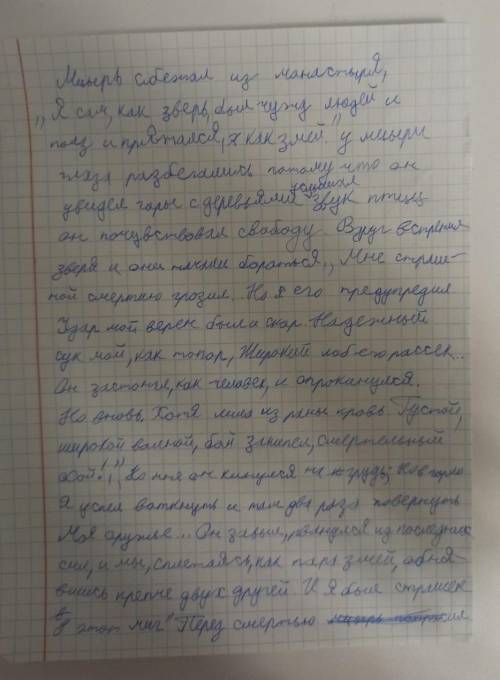 Мцырь сбежал из манастыря,
„Я сам, как зверь, был чужд людей и
полз и прятался, как змей." у мцыри
глаза разбегались потому что он
увидел горы с деревьями услышал звук птиц
он почувствовал свободу. Вдруг встретил
зверя и они начали бороться. „Мне страш-
ной смертию грозил. Но я его предупредил.
Удар мой верен был и скор. Надежный
сук мой, как топор, Широкий лоб его рассек...
Он застонал, как человек, и опрокинулся.
Но вновь, Хотя лила из раны кровь Густой,
широкой волной, бой закипел, смертельный
бой!" „Ко мне он кинулся на грудь; Но в горло
я успел воткнуть и там два раза повернуть
Моё оружье... Он завыл, рванулся из последних
сил, и мы, сплетаясь, как пара змей, обня-
вшись крепче двух друзей. И Я был страшен
в этот миг" Перед смертью